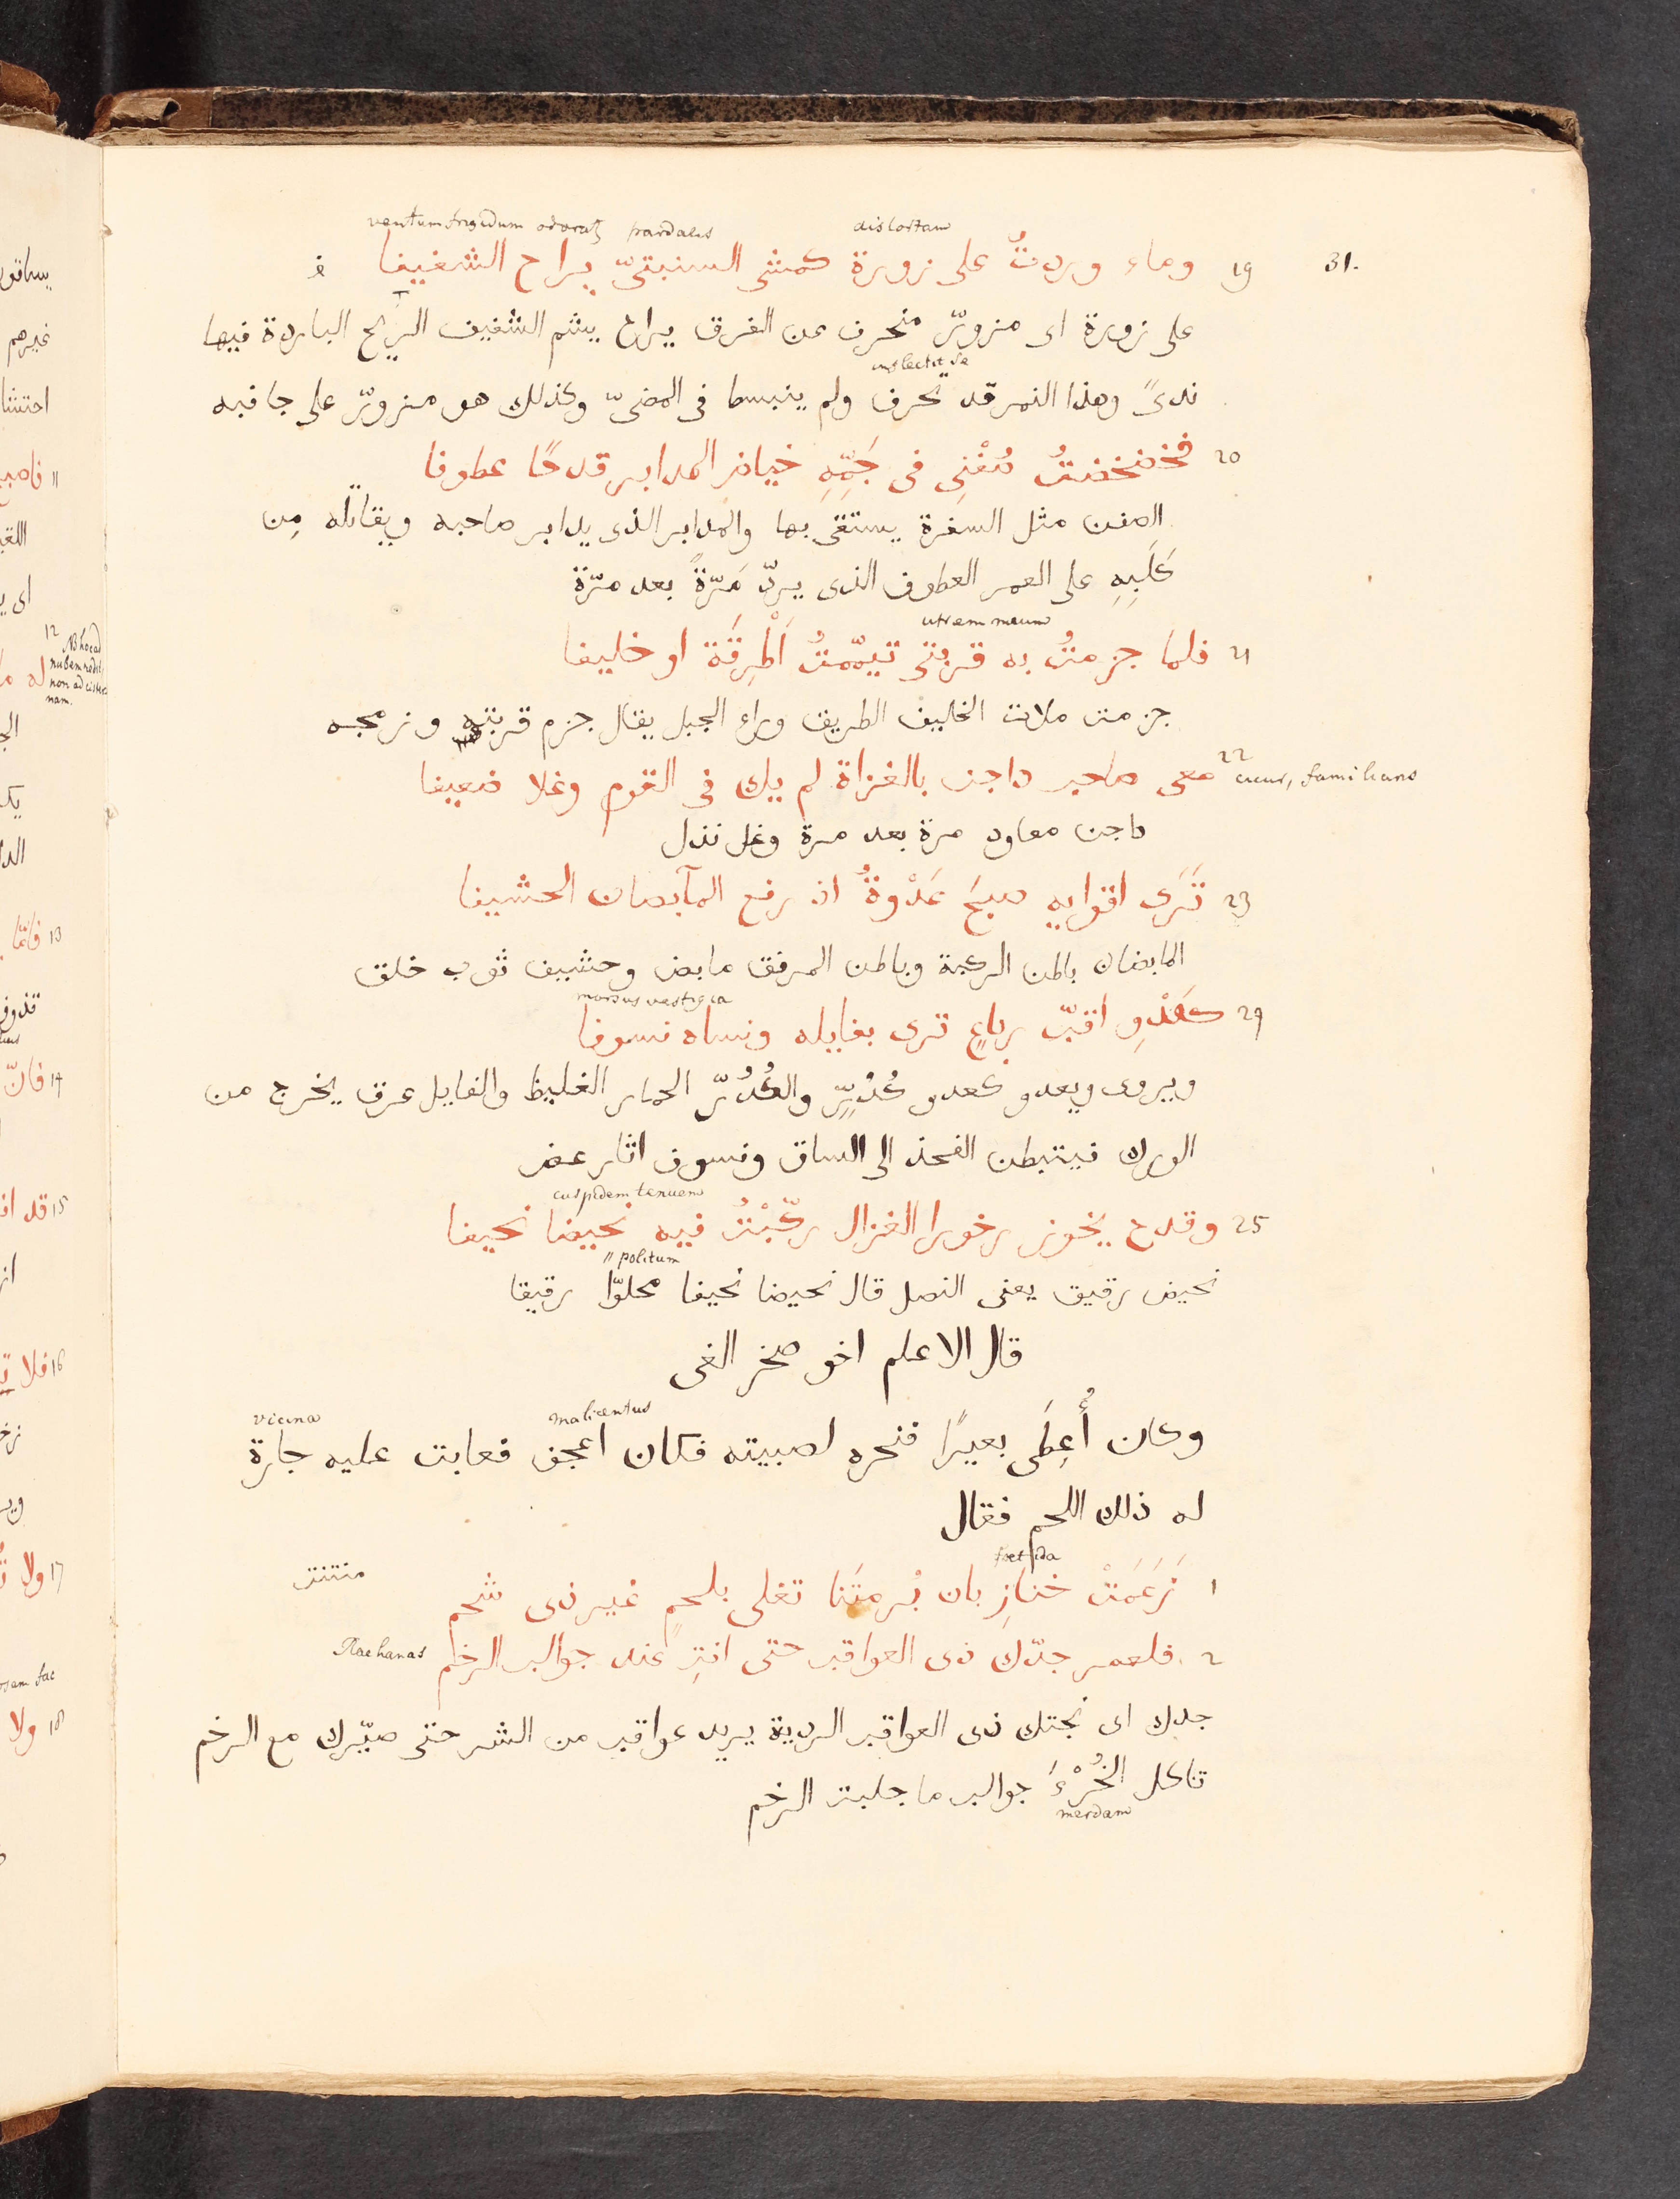 31.
ventum frigidum odorat pardales distortam
19 وماء وردتُ على زورة كمشى السنبتىّ يراح الشفيفا
على زورة اى مزورّ منحرف عن الفرق يراح يشم الشفيف الريح الباردة فيها
inflectit se
ندىً وهذا النمر قد تحرف ولم ينبسط فى المضىّ وكذلك هو مزورّ على جانبه
20 فخضخضتُ صُفْنِى فى جَمِّهِ خياض المدابر قدحًا عطوفا
الصفن مثل السفرة يستقى بها والمدابر الذى يدابر صاحبه ويقاتله مِن
كَلَبِهِ على العمر العطوف الذى يردّ مَرّةً بعد مرّة
utrem meum
21 فلما جزمتُ به قربتى تيمّمتُ اَطْرِقَة او خليفا
جزمت ملات الخليف الطريف وراء الجبل يقال جزم قربته وزمجه
22 معى صاحب داجن بالغزاة لم يك فى القوم وغلا ضعيفا
cicur, familiaris
داجن معاود مرة بعد مرة وغل نذل
23 تَرَى اقوابه صبحَ عَدْوةٌ اذ رفع المآبضان الحشيفا
المابضان باطن الركبة وباطن المرفق مابض وحشيف ثوب خلق
morsus vestigia
24 كعَدْوِ اقبّ رباعٍ ترى بفايله ونساه نسوفا
ويروى ويعدو كعدو كُدُرٍّ والكُدُرّ الحمار الغليظ والفايل عرق يخرج من
الورك فيتبطن الفخذ الى الساق ونسوف اثار عض
cuspidem tenuem
25 وقدح يخور خوار الغزال ركّبْتُ فيه نحيضا نحيفا
politum
نحيض رقيق يعنى النصل قال نحيضا نحيفا محلوّا رقيقا
قال الاعلم اخو صخر الغى
vicina
وكان أُعطِى بعيرًا فنحره لصبيته فكان اعجف فعابت عليه جارة
له ذلك اللحم فقال
foetida
1 زَعَمَتْ خنازِ بان بُرمتَنا تغلى بلحمٍ غير ذى شحم
منتنتن
2 فلعمر جدّك ذى العواقب حتى انتِ عند جوالب الرخم
Rachanas
جدك اى بختك ذى العواقب الردية يريد عواقب من الشر حتى صيّرك مع الرخم
تاكل الخُرْءَ جوالب ما جلبت الرخم
merdam